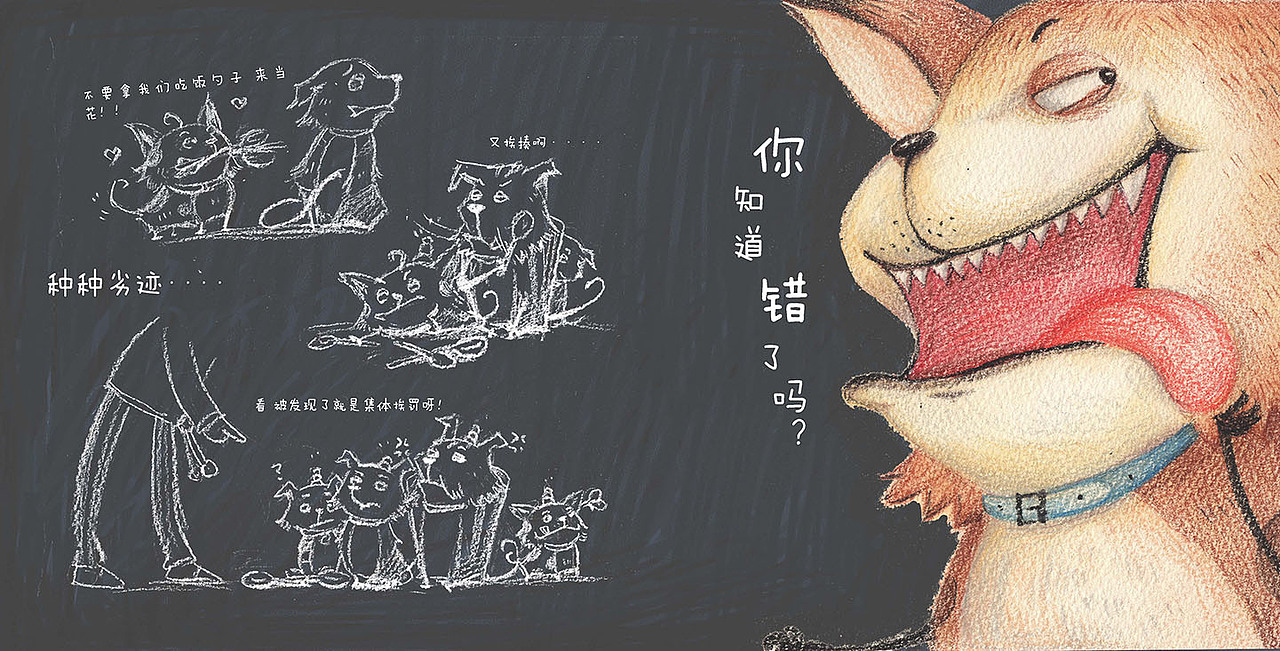 不要拿我们吃饭勺子 来当
花!!
又挨揍啊 · · · ·
种种劣迹 · · · ·
看 被发现了就是集体挨罚呀!
你知道错了吗?